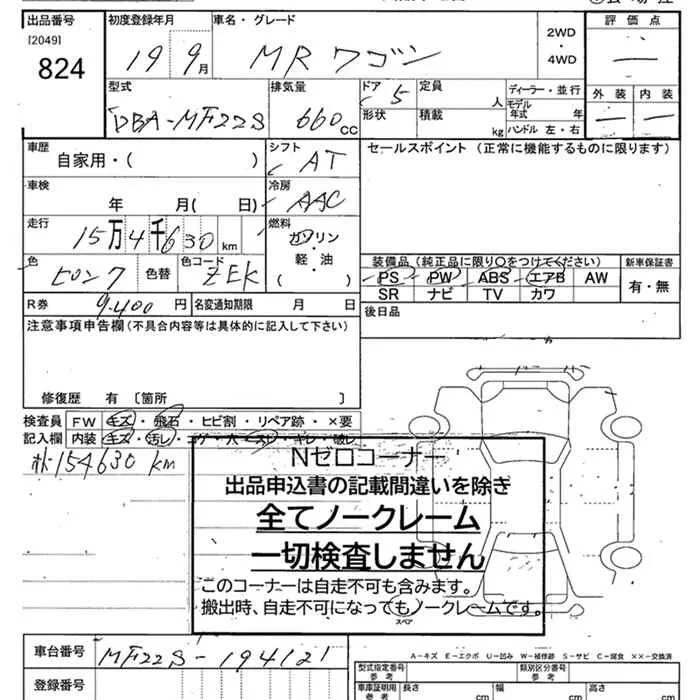 出品番号 初度登録年月 車名・グレード 評価点
[2049] 824 19 9月 MR ワゴン 2WD・4WD
外装 内装
型式 排気量 ドア 定員 ディーラー・並行
DBA-MF22S 660cc 5 人 モデル年式 年
形状 積載 kg ハンドル 左・右
車歴 シフト セールスポイント(正常に機能するものに限ります)
自家用・( ) AT
車検 冷房
年 月( 日) AAC
走行 燃料
15万4千630km ガソリン・軽・油( )
色 色替 色コード 装備品(純正品に限り○をつけてください) 新車保証書
ピンク ZEK PS PW ABS エアB AW 有・無
SR ナビ TV カワ
R券 9,400円 名変通知期限 月 日 後日品
注意事項申告欄(不具合内容等は具体的に記入して下さい)
修復歴 有〔箇所 〕
検査員 FW キズ・飛石・ヒビ割・リペア跡・×要
記入欄 内装 キズ・汚レ・コゲ・穴・スレ・キレ・破レ
154630 km
Nゼロコーナー
出品申込書の記載間違いを除き
全てノークレーム
一切検査しません
このコーナーは自走不可も含みます。
搬出時、自走不可になってもノークレームです。
スペア
A-キズ E-エクボ U-凹み W-補修跡 S-サビ C-腐食 XX-交換済
車台番号 MF22S-194121
型式指定番号 参考 類別区分番号 参考
登録番号 車庫証明用 参考 長さ cm 幅 cm 高さ cm